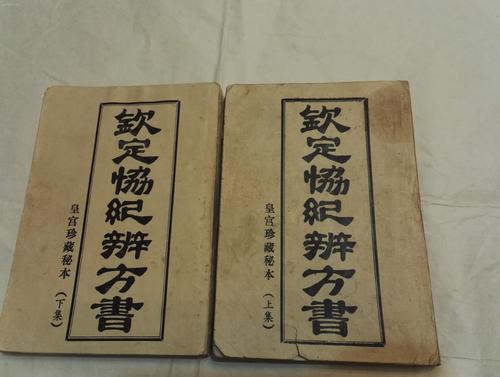 欽定協紀辨方書
皇宮珍藏秘本（下集）
欽定協紀辨方書
皇宮珍藏秘本（上集）